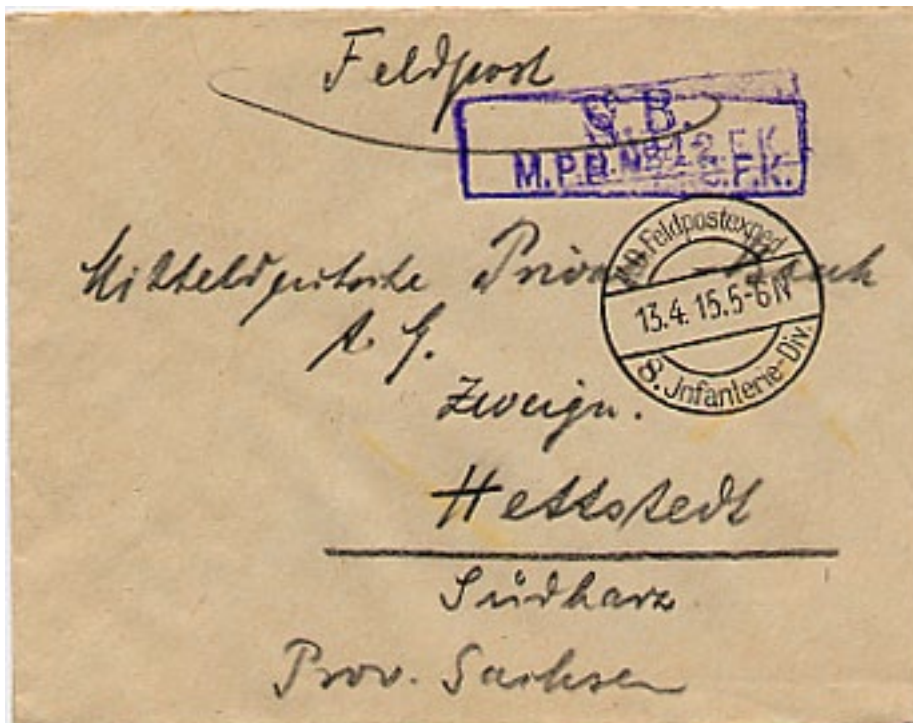 Feldpost
S. B.
M.P.B. No. 12. F.K.
K.D. Feldpostexped.
13.4.15.5-6N
8. Infanterie-Div.
Mitteldeutsche Privat-Bank
A. G.
Zweign.
Hettstedt
Südharz
Prov. Sachsen